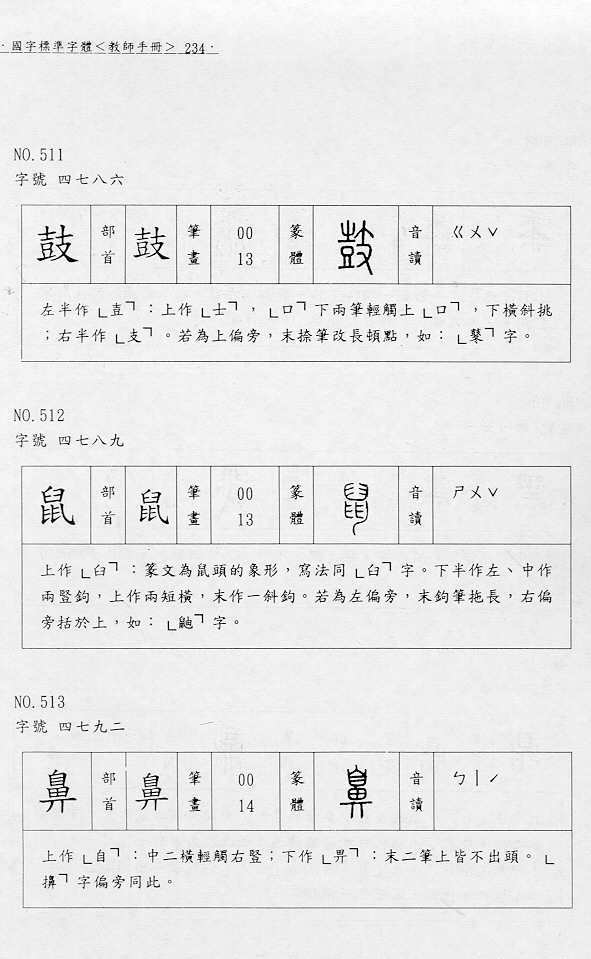 ·國字標準字體＜教師手冊＞ 234·
NO.511
字號 四七八六
鼓 部首 鼓 筆畫 00 13 篆體 鼓 音讀 ㄍㄨˇ
左半作「壴」：上作「士」，「口」下兩筆輕觸上「口」，下橫斜挑
；右半作「支」。若為上偏旁，末捺筆改長頓點，如：「鼕」字。
NO.512
字號 四七八九
鼠 部首 鼠 筆畫 00 13 篆體 鼠 音讀 ㄕㄨˇ
上作「臼」：篆文為鼠頭的象形，寫法同「臼」字。下半作左、中作
兩豎鉤，上作兩短橫，末作一斜鉤。若為左偏旁，末鉤筆拖長，右偏
旁括於上，如：「鼬」字。
NO.513
字號 四七九二
鼻 部首 鼻 筆畫 00 14 篆體 鼻 音讀 ㄅㄧˊ
上作「自」：中二橫輕觸右豎；下作「畀」：末二筆上皆不出頭。「
擤」字偏旁同此。